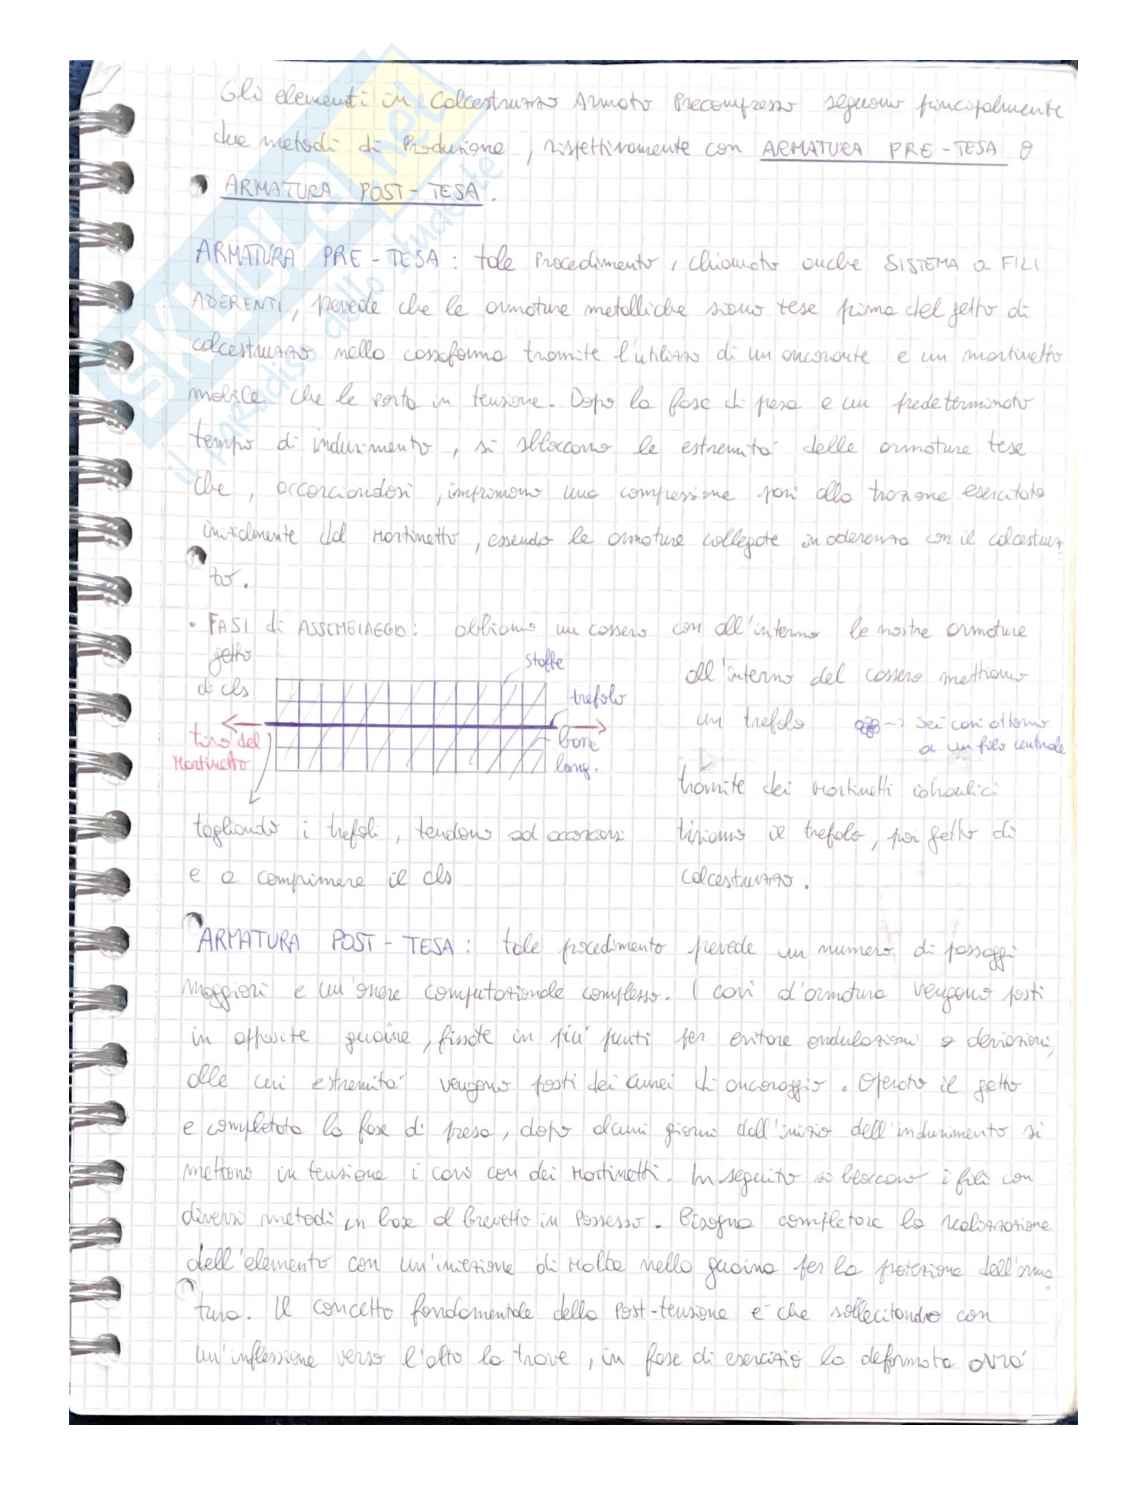 Gli elementi in Calcestruzzo Armato Precompresso seguono principalmente
due metodi di Produzione, rispettivamente con ARMATURA PRE-TESA e
ARMATURA POST-TESA.
ARMATURA PRE-TESA: tale Procedimento, chiamato anche SISTEMA a FILI
ADERENTI, prevede che le armature metalliche siano tese prima del getto di
calcestruzzo nella cassaforma tramite l'utilizzo di un ancorante e un martinetto
mobile che le porta in tensione. Dopo la fase di presa e un predeterminato
tempo di indurimento, si sbloccano le estremità delle armature tese
che, accorciandosi, imprimono una compressione pari alla trazione esercitata
inizialmente dal Martinetto, essendo le armature collegate in aderenza con il calcestruz
zo.
• FASI di ASSEMBLAGGIO: abbiamo un cassero con all'interno le nostre armature
getto
di cls
staffe
trefolo
barre
long.
tiro del
Martinetto
all'interno del cassero mettiamo
un trefolo → sei cavi attorno
a un filo centrale
tramite dei martinetti idraulici
tiriamo il trefolo, poi getto di
calcestruzzo.
tagliando i trefoli, tendono ad accorciarsi
e a comprimere il cls
ARMATURA POST-TESA: tale procedimento prevede un numero di passaggi
maggiori e un'onere computazionale complesso. I cavi d'armatura vengono posti
in apposite guaine, fissate in più punti per evitare ondulazioni e deviazioni,
alle cui estremità vengono posti dei cunei di ancoraggio. Operato il getto
e completata la fase di presa, dopo alcuni giorni dall'inizio dell'indurimento si
mettono in tensione i cavi con dei Martinetti. In seguito si bloccano i fili con
diversi metodi in base al brevetto in Possesso. Bisogna completare la realizzazione
dell'elemento con un'iniezione di Malta nella guaina per la protezione dell'arma
tura. Il concetto fondamentale della Post-tensione è che sollecitando con
un'inflessione verso l'alto la trave, in fase di esercizio la deformata avrà
SKUOLA.net
il paradiso dello studente